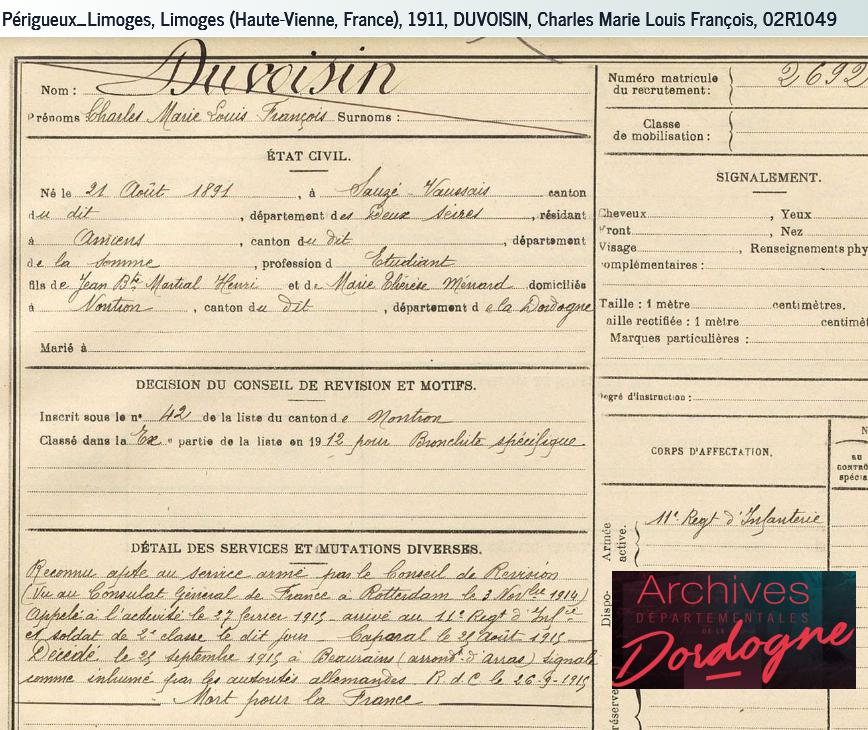 Périgueux_Limoges, Limoges (Haute-Vienne, France), 1911, DUVOISIN, Charles Marie Louis François, 02R1049
Nom : Duvoisin
Prénoms Charles Marie Louis François Surnoms :
ÉTAT CIVIL.
Né le 21 Août 1891, à Sauzé-Vaussais canton
du dit, département des Deux Sèvres, résidant
à Amiens, canton du dit, département
de la Somme, profession d Etudiant
fils de Jean Bte Martial Henri et de Marie Thérèse Ménard domiciliés
à Nontron, canton du dit, département de la Dordogne
Marié à
DECISION DU CONSEIL DE REVISION ET MOTIFS.
Inscrit sous le n° 42 de la liste du canton de Nontron
Classé dans la Ex e partie de la liste en 1912 pour Bronchite spécifique
DÉTAIL DES SERVICES ET MUTATIONS DIVERSES.
Reconnu apte au service armé par le Conseil de Revision
(Vu au Consulat Général de France à Rotterdam le 3 Novbre 1914)
Appelé à l'activité le 27 fevrier 1915 arrivé au 11e Regt d'Infie
et soldat de 2e classe le dit jour _ Caporal le 25 Août 1915
Décédé le 25 septembre 1915 à Beaurains (arrondt d'Arras) signalé
comme inhumé par les autorités allemandes R. d. C le 26-9-1915
Mort pour la France
Numéro matricule
du recrutement : 2692
Classe
de mobilisation :
SIGNALEMENT.
Cheveux , Yeux
Front , Nez
Visage , Renseignements phy
complémentaires :
Taille : 1 mètre centimètres.
aille rectifiée : 1 mètre centimèt
Marques particulières :
Degré d'instruction :
CORPS D'AFFECTATION.
N
au
CONTRÔ
spécia
Armée
active.
11e Regt d'Infanterie
Dispo-
réserve
Archives
DÉPARTEMENTALES
DE LA
Dordogne